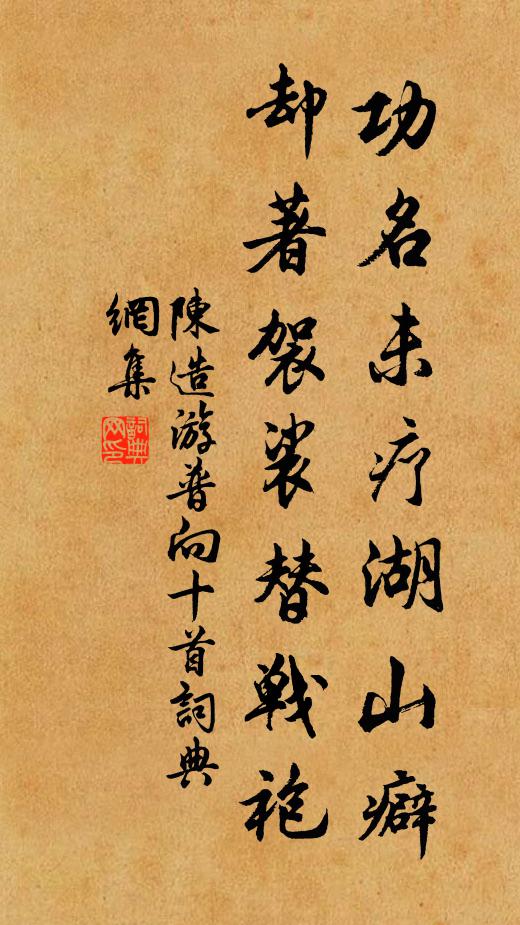 功名未疗湖山癖
却著袈裟替戦袍
陳造游普向十首詞典
網集
詞典網印